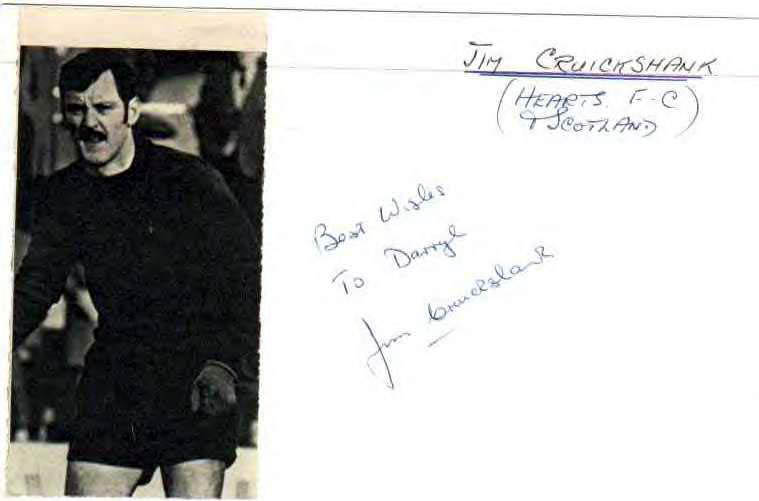 JIM CRUICKSHANK
(HEARTS. F.C
& SCOTLAND)
Best Wishes
To Darryl
Jim Cruickshank